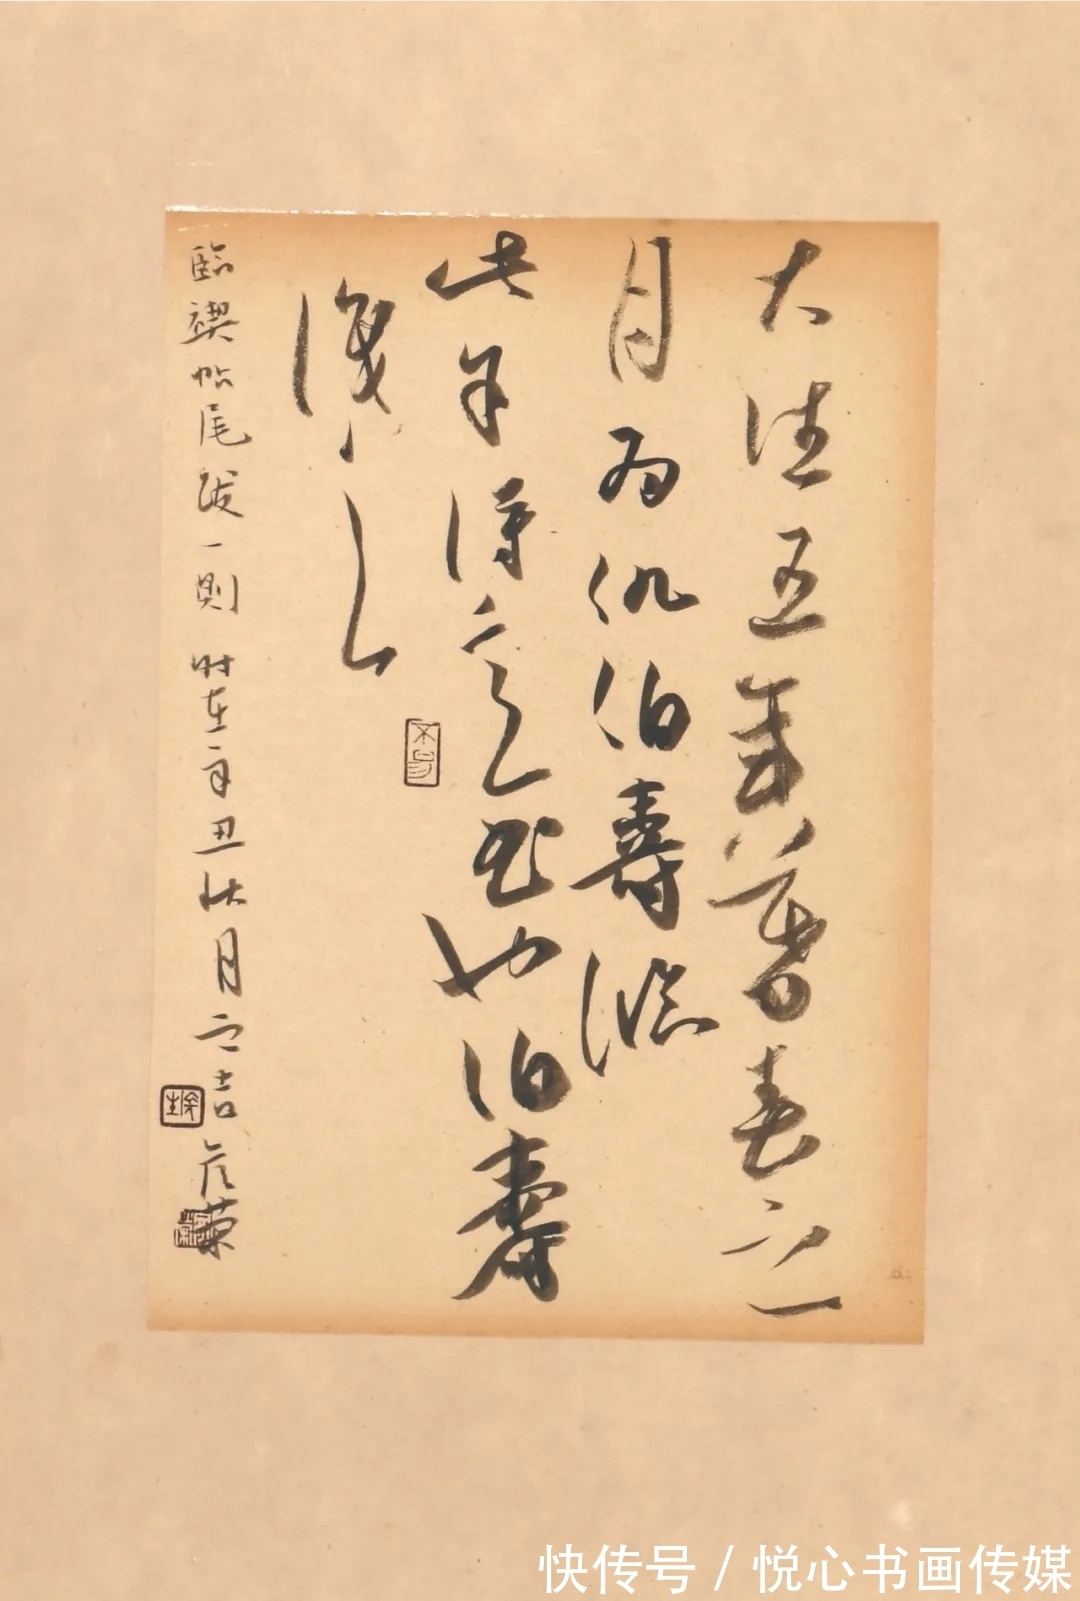 大德五年暮春之一
月为仇伯寿临
此本得意书也伯寿
臨禊帖尾跋一則 时在辛丑秋月之吉
快传号 / 悦心书画传媒